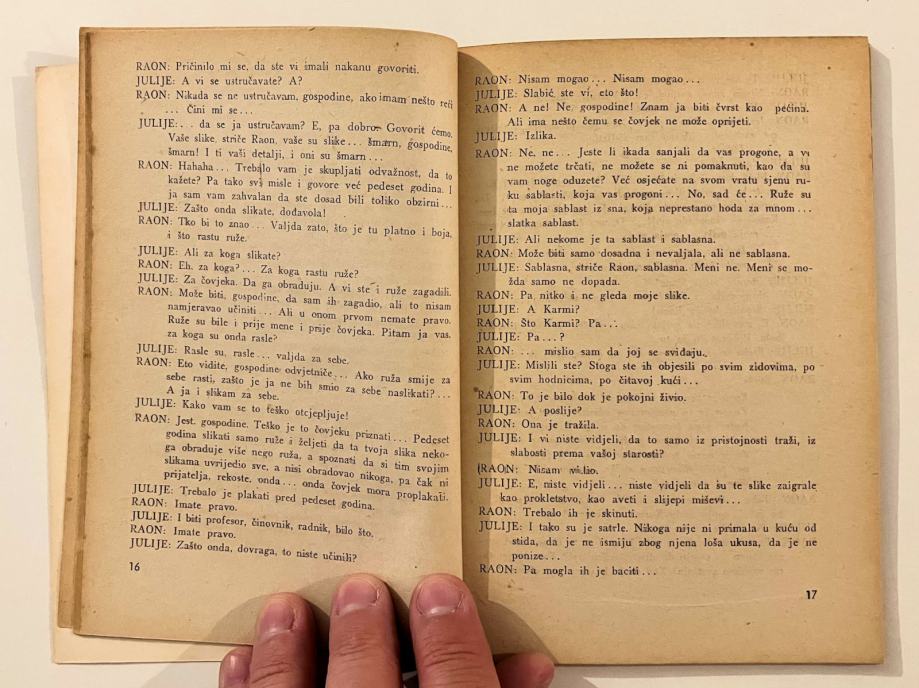 RAON: Pričinilo mi se, da ste vi imali nakanu govoriti.
JULIJE: A vi se ustručavate? A?
RAON: Nikada se ne ustručavam, gospodine, ako imam nešto reći
... Čini mi se...
JULIJE:... da se ja ustručavam? E, pa dobro. Govorit ćemo.
Vaše slike, striče Raon, vaše su slike... šmarn, gospodine,
šmarn! I ti vaši detalji, i oni su šmarn...
RAON: Hahaha... Trebalo vam je skupljati odvažnost, da to
kažete? Pa tako svi misle i govore već pedeset godina. I
ja sam vam zahvalan da ste dosad bili toliko obzirni...
JULIJE: Zašto onda slikate, dođavola!
RAON: Tko bi to znao... Valjda zato, što je tu platno i boja,
i što rastu ruže.
JULIJE: Ali za koga slikate?
RAON: Eh, za koga?... Za koga rastu ruže?
JULIJE: Za čovjeka. Da ga obraduju. A vi ste i ruže zagadili.
RAON: Može biti, gospodine, da sam ih zagadio, ali to nisam
namjeravao učiniti... Ali u onom prvom nemate pravo.
Ruže su bile i prije mene i prije čovjeka. Pitam ja vas,
za koga su onda rasle?
JULIJE: Rasle su, rasle... valjda za sebe.
RAON: Eto vidite, gospodine odvjetniče... Ako ruža smije za
sebe rasti, zašto je ja ne bih smio za sebe naslikati?...
A ja i slikam za sebe.
JULIJE: Kako vam se to teško otcjepljuje!
RAON: Jest, gospodine. Teško je to čovjeku priznati... Pedeset
godina slikati samo ruže i željeti da ta tvoja slika neko-
ga obraduje više nego ruža, a spoznati da si tim svojim
slikama uvrijedio sve, a nisi obradovao nikoga, pa čak ni
prijatelja, rekoste, onda... onda čovjek mora proplakati.
JULIJE: Trebalo je plakati pred pedeset godina.
RAON: Imate pravo.
JULIJE: I biti profesor, činovnik, radnik, bilo što.
RAON: Imate pravo.
JULIJE: Zašto onda, dovraga, to niste učinili?
16
RAON: Nisam mogao... Nisam mogao...
JULIJE: Slabić ste vi, eto što!
RAON: A ne! Ne, gospodine! Znam ja biti čvrst kao pećina.
Ali ima nešto čemu se čovjek ne može oprijeti.
JULIJE: Izlika.
RAON: Ne, ne... Jeste li ikada sanjali da vas progone, a vi
ne možete trčati, ne možete se ni pomaknuti, kao da su
vam noge oduzete? Već osjećate na svom vratu sjenu ru-
ku sablasti, koja vas progoni... No, sad će... Ruže su
ta moja sablast iz sna, koja neprestano hoda za mnom...
slatka sablast.
JULIJE: Ali nekome je ta sablast i sablasna.
RAON: Može biti samo dosadna i nevaljala, ali ne sablasna.
JULIJE: Sablasna, striče Raon, sablasna. Meni ne. Meni se mo-
žda samo ne dopada.
RAON: Pa nitko i ne gleda moje slike.
JULIJE: A Karmi?
RAON: Što Karmi? Pa...
JULIJE: Pa...?
RAON: ... mislio sam da joj se sviđaju.
JULIJE: Mislili ste? Stoga ste ih objesili po svim zidovima, po
svim hodnicima, po čitavoj kući...
RAON: To je bilo dok je pokojni živio.
JULIJE: A poslije?
RAON: Ona je tražila.
JULIJE: I vi niste vidjeli, da to samo iz pristojnosti traži, iz
slabosti prema vašoj starosti?
RAON: Nisam vidio.
JULIJE: E, niste vidjeli... niste vidjeli da su te slike zaigrale
kao prokletstvo, kao aveti i slijepi miševi...
RAON: Trebalo ih je skinuti.
JULIJE: I tako su je satrle. Nikoga nije ni primala u kuću od
stida, da je ne ismiju zbog njena loša ukusa, da je ne
ponize...
RAON: Pa mogla ih je baciti...
17